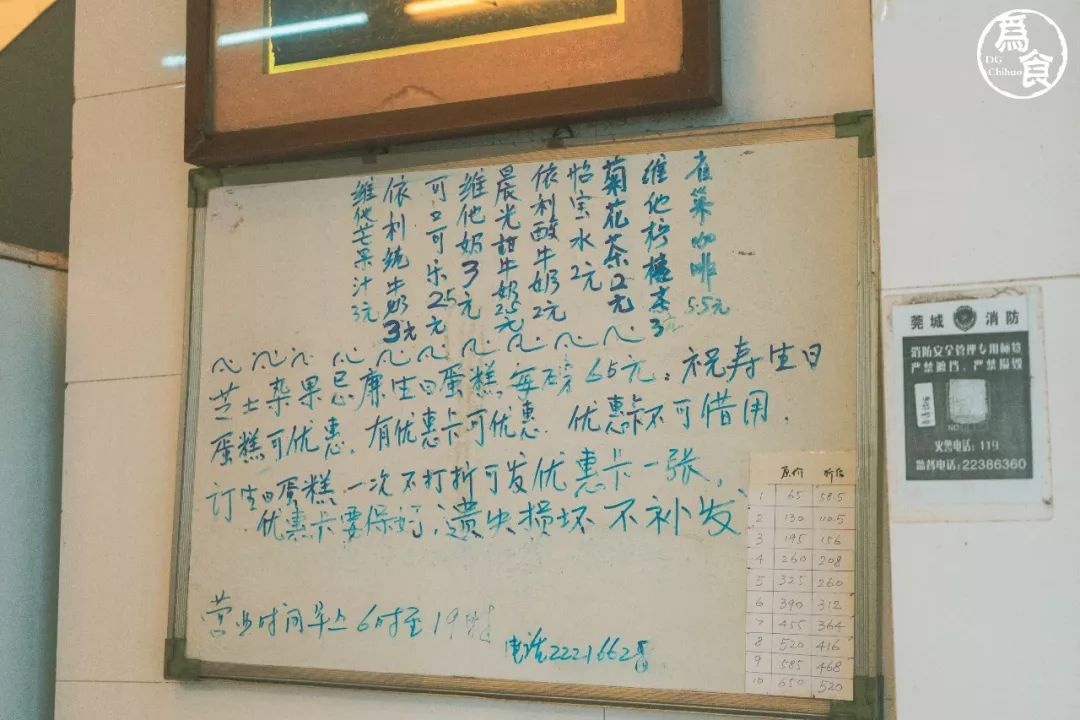 為食
DG
Chihuo
雀巢咖啡5.5元
維他柠檬茶3元
菊花茶2元
怡宝水2元
依利酸牛奶2元
晨光甜牛奶2.5元
维他奶3元
可口可乐2.5元
依利纯牛奶3元
維他芒果汁3元
芝士杂果忌廉生日蛋糕每磅65元。祝寿生日
蛋糕可优惠。有优惠卡可优惠。优惠卡不可借用。
订生日蛋糕一次不打折可发优惠卡一张，
优惠卡要保好，遗失损坏不补发
营业时间早上6时至19时
电话2221662
原价 折后
1 65 58.5
2 130 110.5
3 195 156
4 260 208
5 325 260
6 390 312
7 455 364
8 520 416
9 585 468
10 650 520
莞城 消防
消防安全管理专用标签
严禁遮挡、严禁损毁
火警电话：119
监督电话：22386360